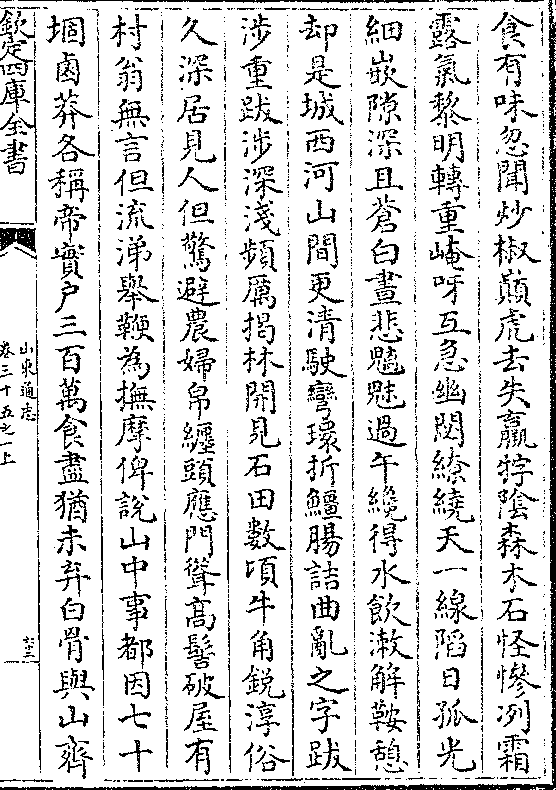 食有味忽聞炒椒顛虎去失羸牸陰森木石怪慘冽霜
露氣黎明轉重崦呀互急幽閟繚繞天一線陷日孤光
細嵌隙深且蒼白晝悲魑魅過午纔得水飲漱解鞍憩
却是城西河山間更清駛彎環折鱷腸詰曲亂之字跋
涉重跋涉深淺頻厲揭林開見石田數頃牛角銳淳俗
久深居見人但驚避農婦帛纏頭應門聳高髻破屋有
村翁無言但流涕舉鞭為撫摩俾說山中事都因七十
堌鹵莽各稱帝實户三百萬食盡猶未弃白骨與山齊
欽定四庫全書
山東通志
卷三十五之一上
六十三